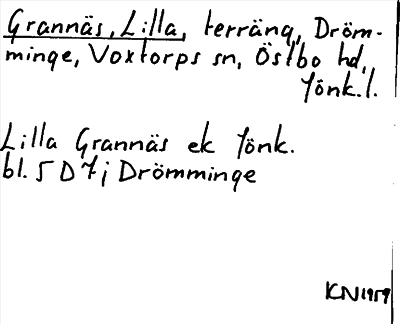 Grannäs, Lilla, terräng, Dröm-
minge, Voxtorps sn, Östbo hd,
Jönk.l.
Lilla Grannäs ek Jönk.
bl. 5 D 7 j Drömminge
KN1959